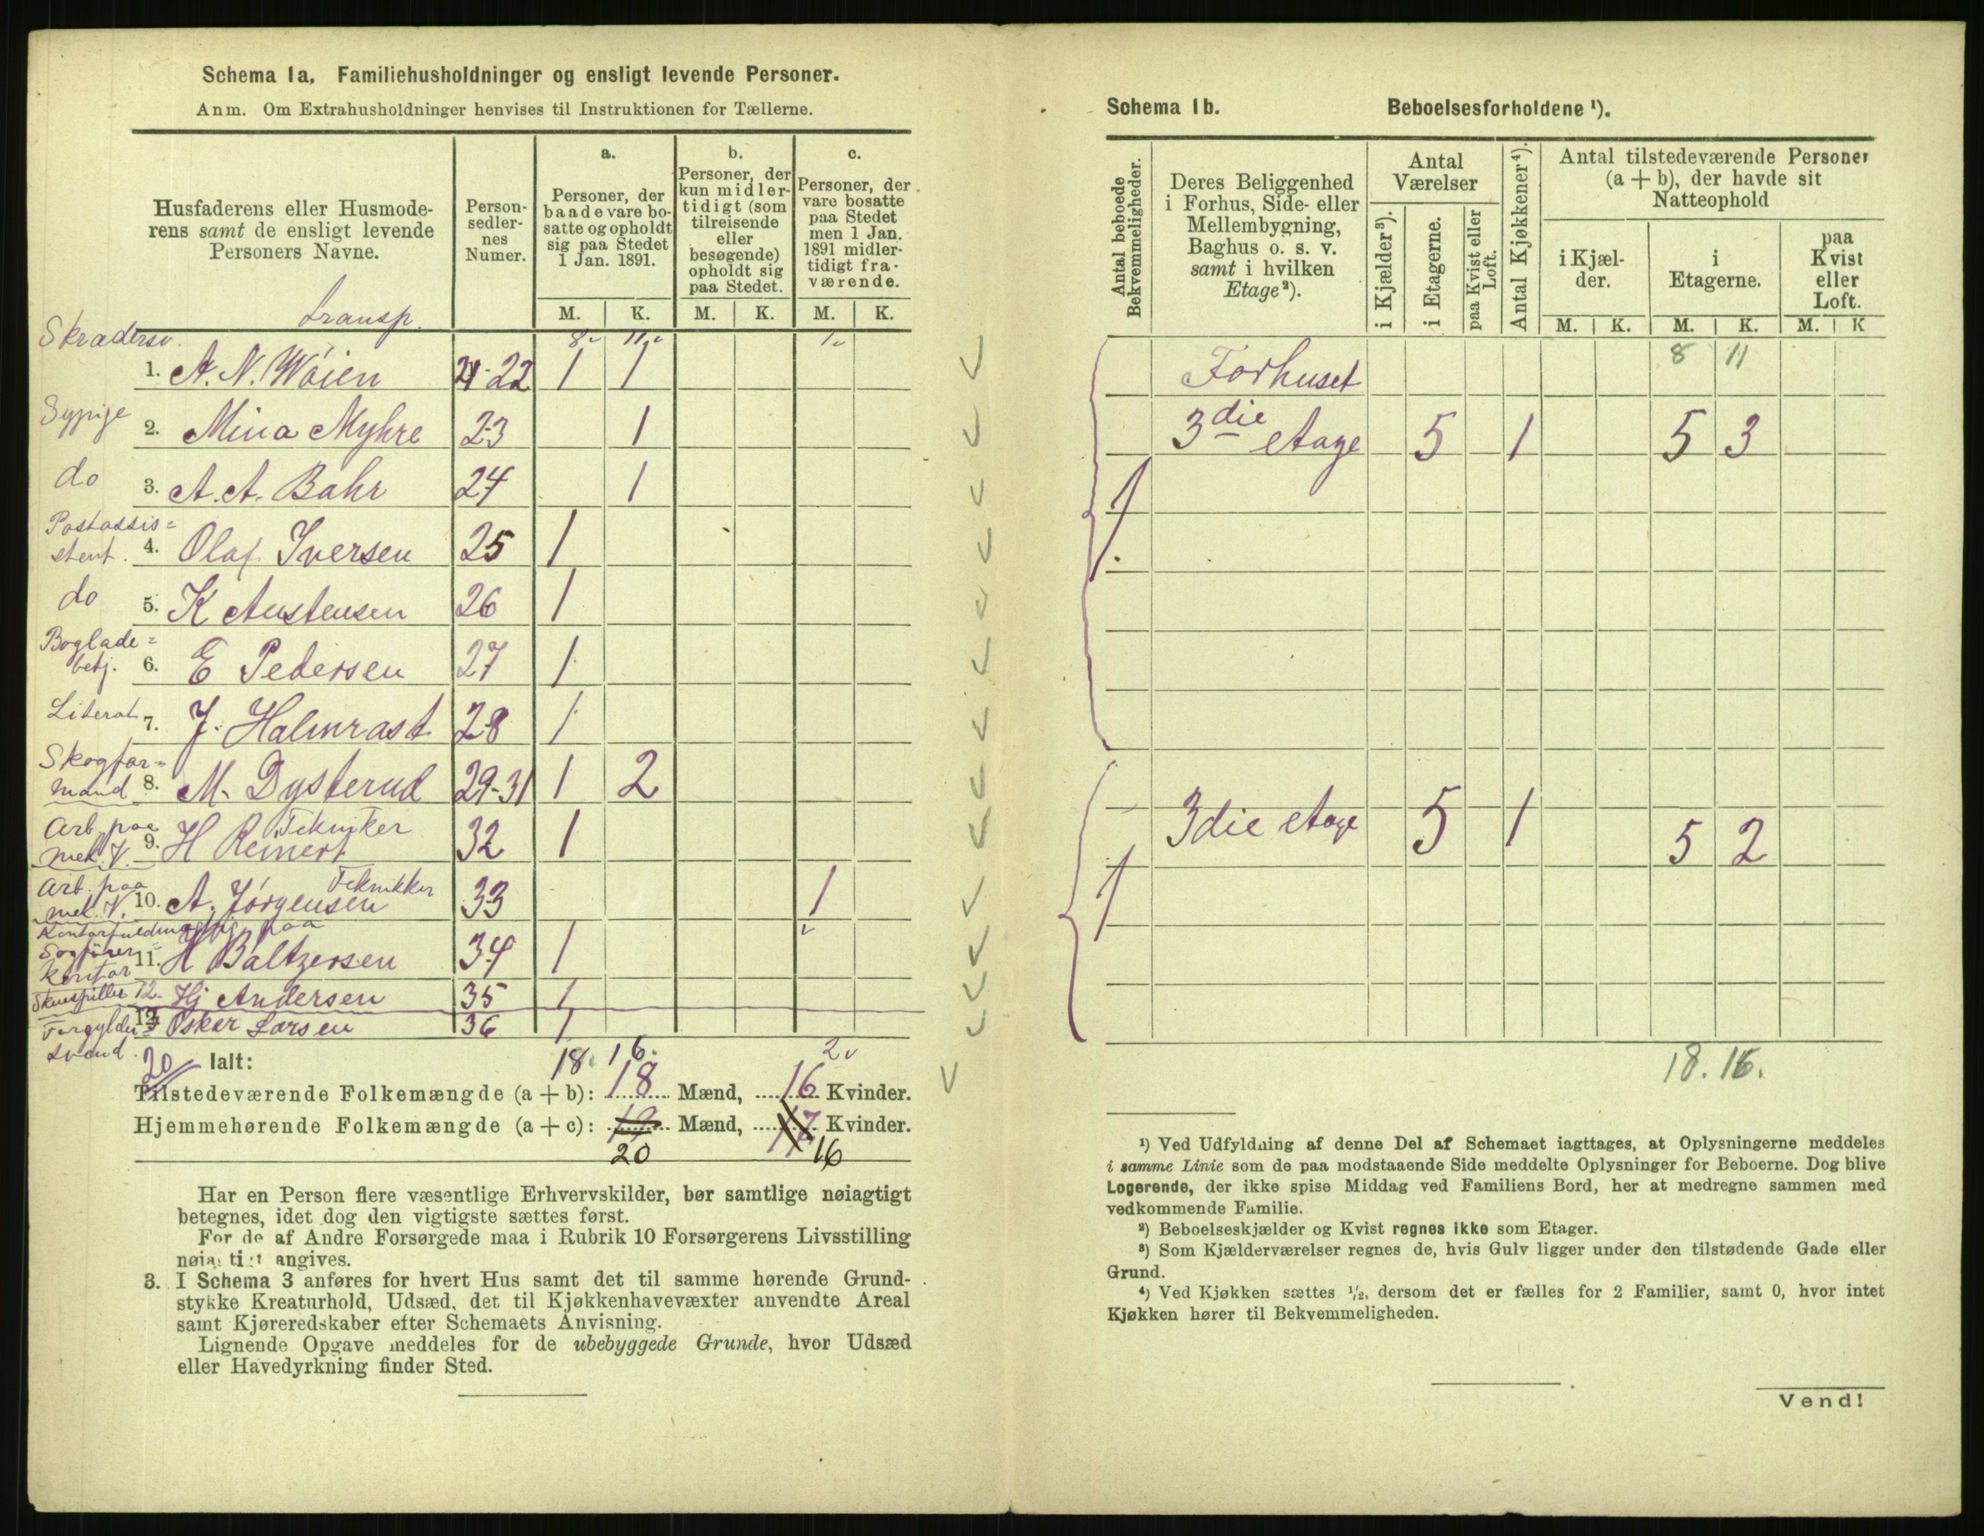 Schema 1a. Familiehusholdninger og ensligt levende Personer.
Anm. Om Extrahusholdninger henvises til Instruktionen for Tællerne.
Husfaderens eller Husmode-
rens samt de ensligt levende
Personers Navne.
Person-
sedler-
nes
Numer.
a.
Personer, der
baade vare bo-
satte og opholdt
sig paa Stedet
1 Jan. 1891.
b.
Personer, der
kun midler-
tidigt (som
tilreisende
eller
besøgende)
opholdt sig
paa Stedet.
c.
Personer, der
vare bosatte
paa Stedet
men 1 Jan.
1891 midler-
tidigt fra-
værende.
M. K. M. K. M. K.
Transp. 8. 11. 1.
Skrædersv.
1. A. N. Wøien 21-22 1 1
Sypige
2. Mina Myhre 23 1
do
3. A. A. Bahr 24 1
Postassis=
stent. 4. Olaf Iversen 25 1
do
5. K Austensen 26 1
Boglade=
betj. 6. E Pedersen 27 1
Literat 7. J. Halmrast 28 1
Skogfor=
mand 8. M. Dysterud 29-31 1 2
Arb. paa Tekniker
mek. V. 9. H Reinert 32 1
Arb. paa Teknikker
mek. V. 10. A. Jørgensen 33 1
paa
Sagfører=
kontor 11. H Baltzersen 34 1
Skuespiller 12. Hj Andersen 35 1
Forgylder
svend. 13 Oskar Larsen 36 1
20 Ialt: 18. 16. 2
Tilstedeværende Folkemængde (a + b): 18 Mænd, 16 Kvinder.
Hjemmehørende Folkemængde (a + c): 19 Mænd, 17 Kvinder.
20 16
Har en Person flere væsentlige Erhvervskilder, bør samtlige nøiagtigt
betegnes, idet dog den vigtigste sættes først.
For de af Andre Forsørgede maa i Rubrik 10 Forsørgerens Livsstilling
nøiagtigt angives.
3. I Schema 3 anføres for hvert Hus samt det til samme hørende Grund-
stykke Kreaturhold, Udsæd, det til Kjøkkenhavevæxter anvendte Areal
samt Kjøreredskaber efter Schemaets Anvisning.
Lignende Opgave meddeles for de ubebyggede Grunde, hvor Udsæd
eller Havedyrkning finder Sted.
Schema 1b. Beboelsesforholdene ¹).
Antal beboede
Bekvemmeligheder.
Deres Beliggenhed
i Forhus, Side- eller
Mellembygning,
Baghus o. s. v.
samt i hvilken
Etage²).
Antal
Værelser
i Kjælder³).
i Etagerne.
paa Kvist eller
Loft.
Antal Kjøkkener⁴).
Antal tilstedeværende Personer
(a + b), der havde sit
Natteophold
i Kjæl-
der.
i
Etagerne.
paa
Kvist
eller
Loft.
M. K. M. K. M. K
8 11
Forhuset
3die Etage 5 1 5 3
1
3die Etage 5 1 5 2
1
18. 16.
¹) Ved Udfyldning af denne Del af Schemaet iagttages, at Oplysningerne meddeles
i samme Linie som de paa modstaaende Side meddelte Oplysninger for Beboerne. Dog blive
Logerende, der ikke spise Middag ved Familiens Bord, her at medregne sammen med
vedkommende Familie.
²) Beboelseskjælder og Kvist regnes ikke som Etager.
³) Som Kjælderværelser regnes de, hvis Gulv ligger under den tilstødende Gade eller
Grund.
⁴) Ved Kjøkken sættes ½, dersom det er fælles for 2 Familier, samt 0, hvor intet
Kjøkken hører til Bekvemmeligheden.
Vend!